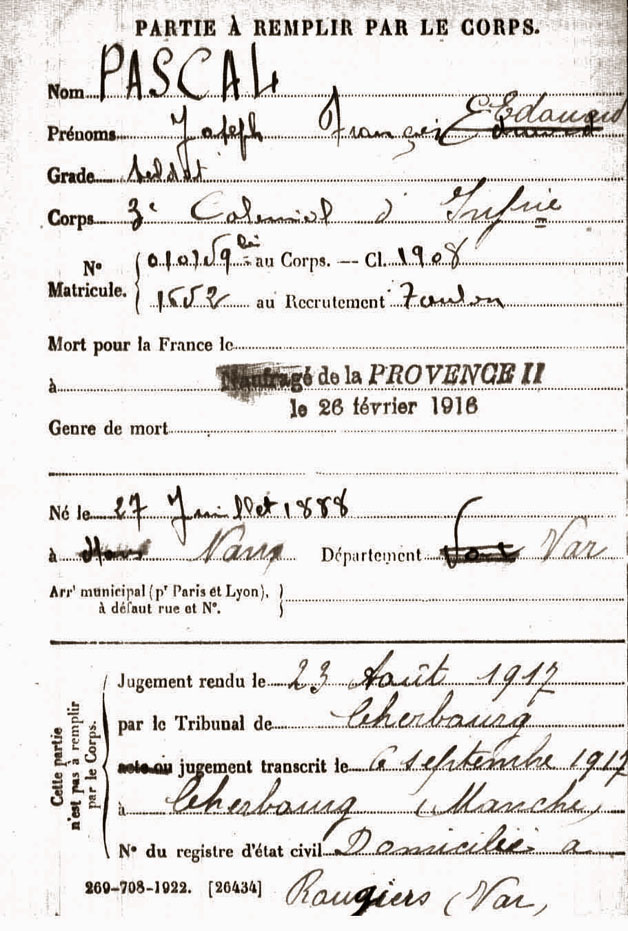 PARTIE À REMPLIR PAR LE CORPS.
Nom PASCAL
Prénoms Joseph François Edouard
Grade soldat
Corps 3e Colonial d' Infrie
Nos Matricule. au Corps. — Cl. 1908
1652 au Recrutement Toulon
Mort pour la France le
à Naufragé de la PROVENCE II
le 26 février 1916
Genre de mort
Né le 27 Juillet 1888
à Nans Département Var
Arrt municipal (pr Paris et Lyon),
à défaut rue et N°.
Cette partie
n'est pas à remplir
par le Corps.
Jugement rendu le 23 Août 1917
par le Tribunal de Cherbourg
acte ou jugement transcrit le 6 septembre 1917
à Cherbourg (Manche)
N° du registre d'état civil Domicilié à
269-708-1922. [26434] Rougiers (Var)